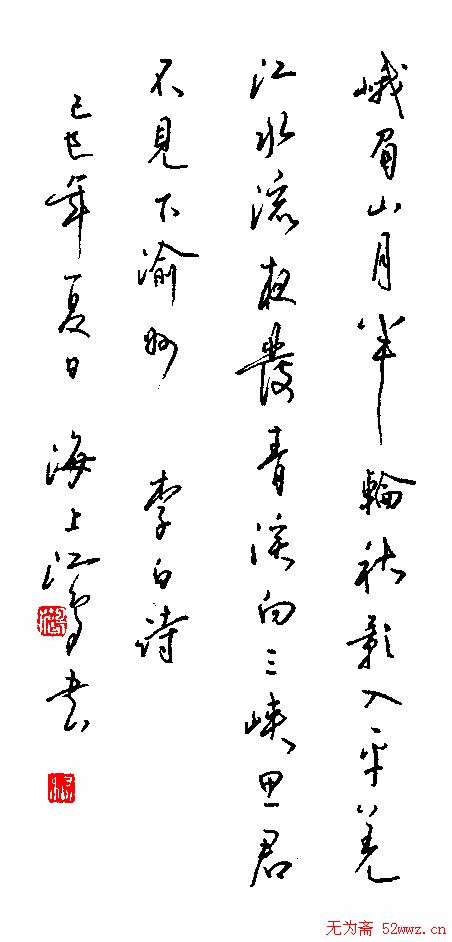 峨眉山月半輪秋影入平羌
江水流夜發青溪向三峽思君
不見下渝州 李白诗
己巳年夏日 海上江鸟书
无为斋 52wwz.cn